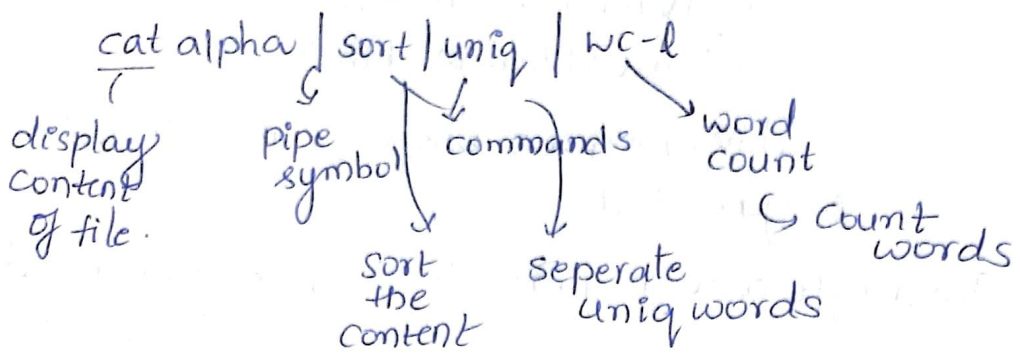 cat alpha | sort | uniq | wc-l
display
content
of file.
pipe
symbol
commands
word
count
count
words
sort
the
content
seperate
uniq words